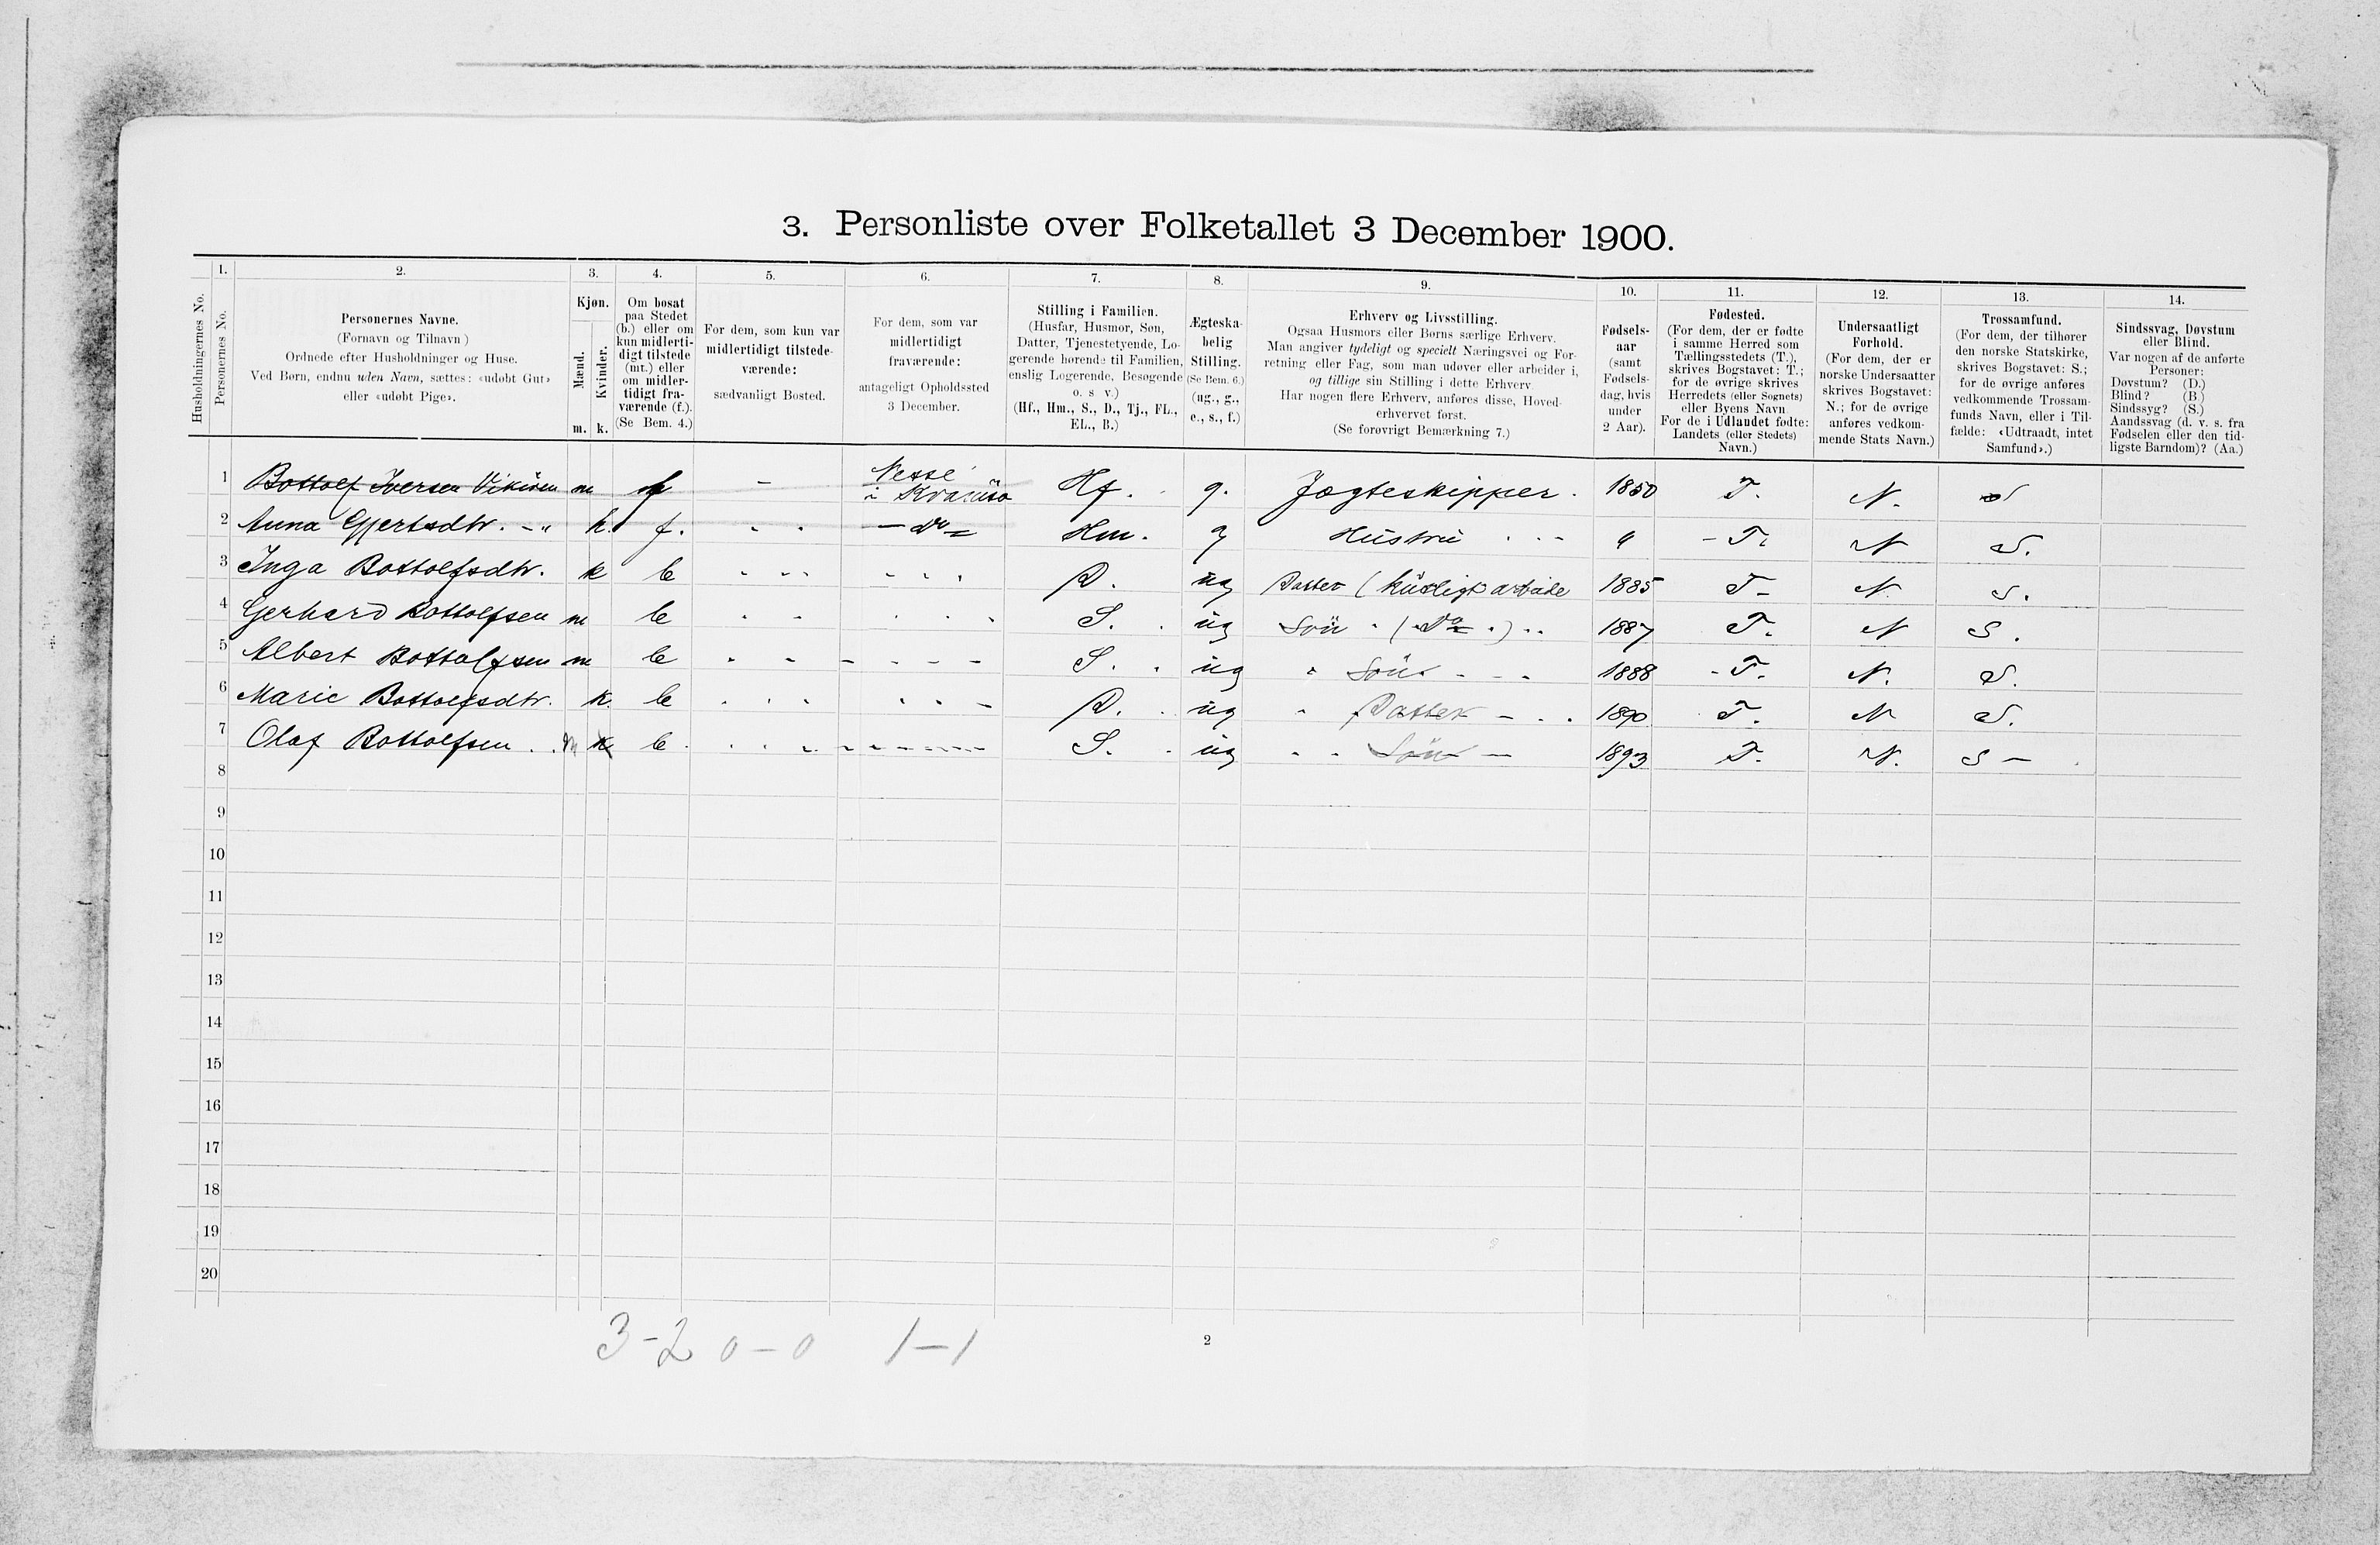 3. Personliste over Folketallet 3 December 1900.
1. 2. 3. 4. 5. 6. 7. 8. 9. 10. 11. 12. 13. 14.
Husholdningernes No.
Personernes No.
Personernes Navne.
(Fornavn og Tilnavn)
Ordnede efter Husholdninger og Huse.
Ved Børn, endnu uden Navn, sættes: «udøbt Gut»
eller «udøbt Pige».
Kjøn.
Mænd.
Kvinder.
m. k.
Om bosat
paa Stedet
(b.) eller om
kun midlerti-
digt tilstede
(mt.) eller
om midler-
tidigt fra-
værende (f.).
(Se Bem. 4.)
For dem, som kun var
midlertidigt tilstede-
værende:
sædvanligt Bosted.
For dem, som var
midlertidigt
fraværende:
antageligt Opholdssted
3 December.
Stilling i Familien.
(Husfar, Husmor, Søn,
Datter, Tjenestetyende, Lo-
gerende hørende til Familien,
enslig Logerende, Besøgende
o. s v.)
(Hf., Hm., S., D., Tj., FL.,
EL., B.)
Ægteska-
belig
Stilling.
(Se Bem. 6.)
(ug., g.,
e., s., f.)
Erhverv og Livsstilling.
Ogsaa Husmors eller Børns særlige Erhverv.
Man angiver tydeligt og specielt Næringsvei og For-
retning eller Fag, som man udøver eller arbeider i,
og tillige sin Stilling i dette Erhverv.
Har nogen flere Erhverv, anføres disse, Hoved-
erhvervet først.
(Se forøvrigt Bemærkning 7.)
Fødsels-
aar
(samt
Fødsels-
dag, hvis
under
2 Aar).
Fødested.
(For dem, der er fødte
i samme Herred som
Tællingsstedets (T.),
skrives Bogstavet: T.;
for de øvrige skrives
Herredets (eller Sognets)
eller Byens Navn.
For de i Udlandet fødte:
Landets (eller Stedets)
Navn.)
Undersaatligt
Forhold.
(For dem, der er
norske Undersaatter
skrives Bogstavet:
N.; for de øvrige
anføres vedkom-
mende Stats Navn.)
Trossamfund.
(For dem, der tilhører
den norske Statskirke,
skrives Bogstavet: S.;
for de øvrige anføres
vedkommende Trossam-
funds Navn, eller i Til-
fælde: «Udtraadt, intet
Samfund».)
Sindssvag, Døvstum
eller Blind.
Var nogen af de anførte
Personer:
Døvstum? (D.)
Blind? (B.)
Sindssyg? (S.)
Aandssvag (d. v. s. fra
Fødselen eller den tid-
ligste Barndom)? (Aa.)
1 Bottolf Iversen m f - Nesse i Hf. g. Jægteskipper. 1850 T. N. S
2 Anna Gjertsdtr. - " k. f. - do - Hm. g Hustru " - T. N S.
3 Inga Bottolfsdtr. k b D. ug Datter (husligt arbeide 1885 T - N S.
4 Gerhard Bottolfsen m b S. ug Søn (do) 1887 T. N S.
5 Albert Bottolfsen m b S. ug Søn 1888 - T. N. S.
6 Marie Bottolfsdtr. k. b D. ug Datter - 1890 T. N S.
7 Olaf Bottolfsen m k b S. ug Søn - 1893 T. N. S -
8
9
10
11
12
13
14
15
16
17
18
19
20
3-2 0-0 1-1
2